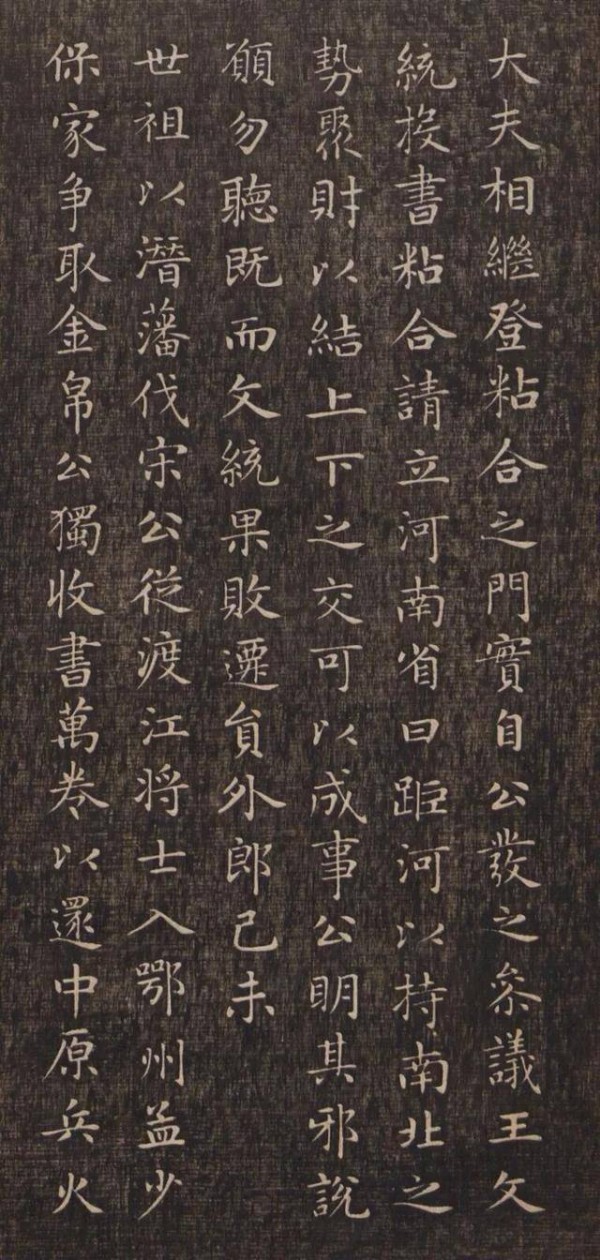 大夫相繼登粘合之門實自公發之叅議王文
統投書粘合請立河南省曰距河以持南北之
勢聚財以結上下之交可以成事公明其邪說
願勿聽既而文統果敗遷貟外郎己未
世祖以潛藩伐宋公從渡江将士入鄂州益少
保家争取金帛公獨收書萬卷以還中原兵火